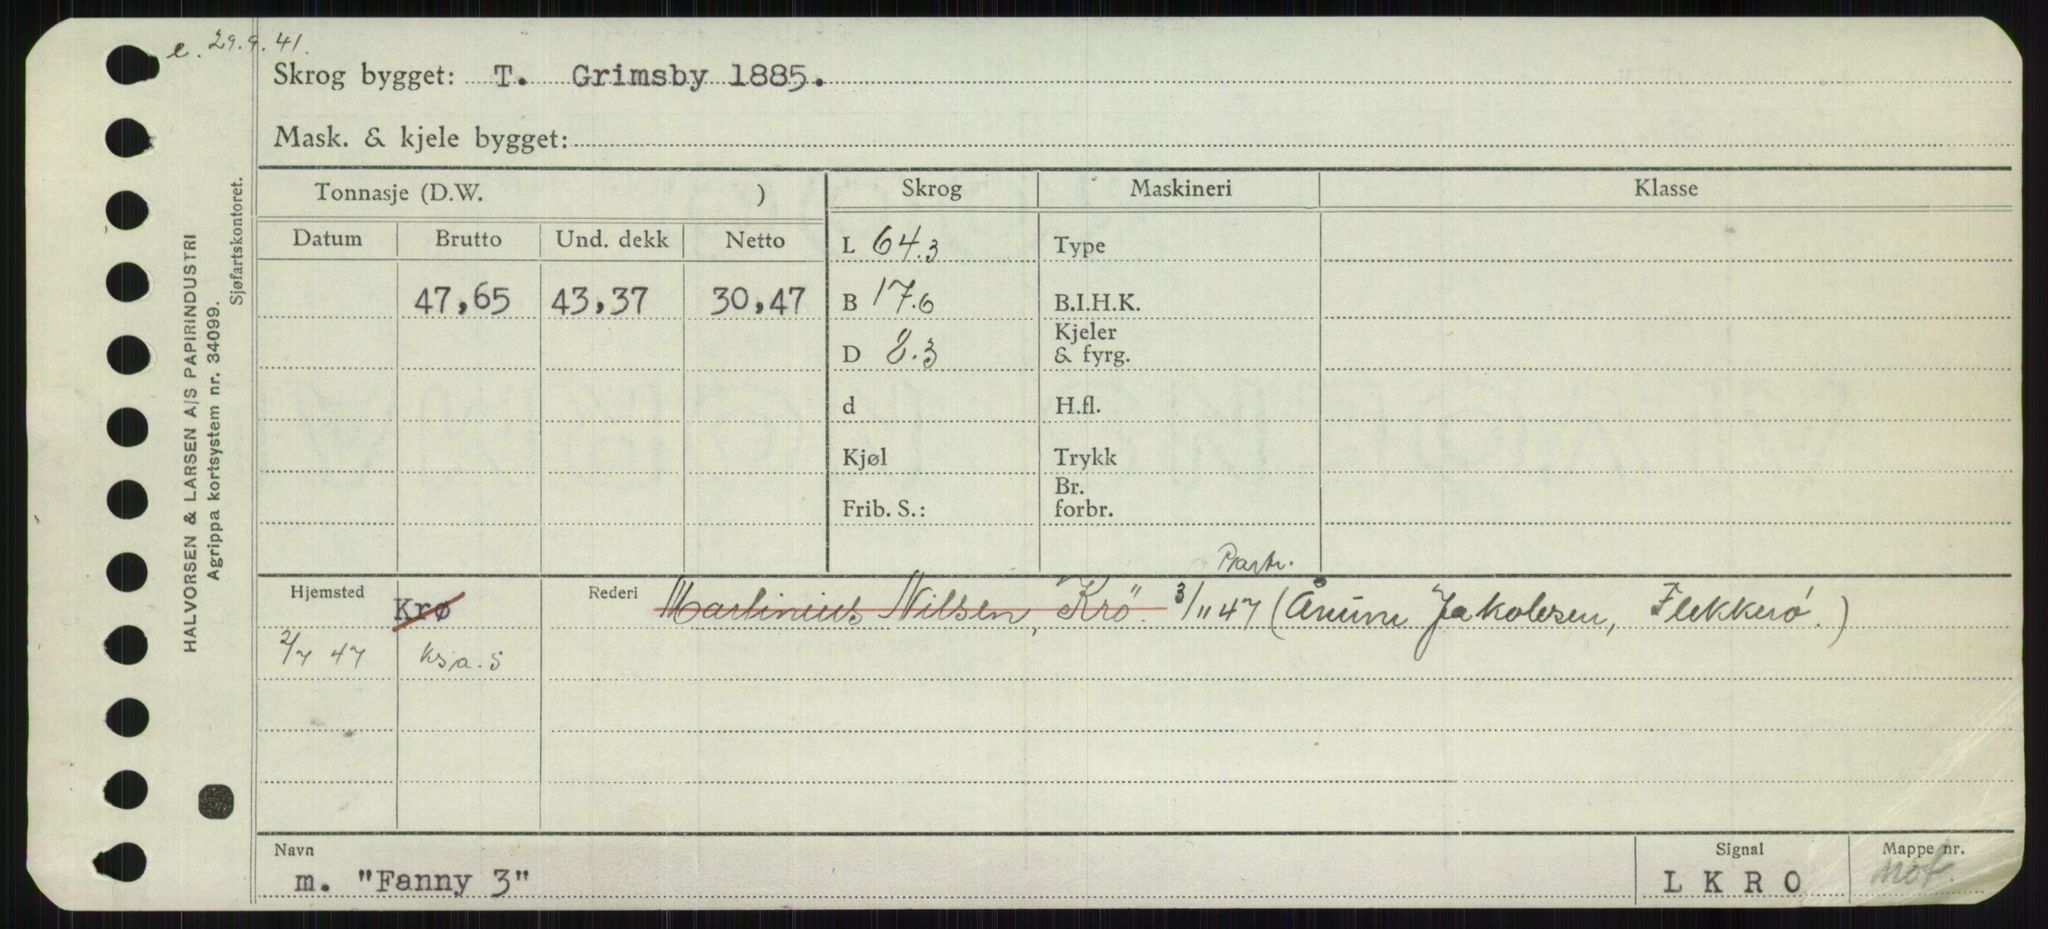 e. 29.9.41.
Skrog bygget: T. Grimsby 1885.
Mask. & kjele bygget:
Tonnasje (D.W. )
Skrog
Maskineri
Klasse
Datum Brutto Und. dekk Netto
47,65 43,37 30,47
L 64.3
B 17.6
D 8.3
d
Kjøl
Frib. S.:
Type
B.I.H.K.
Kjeler
& fyrg.
H.fl.
Trykk
Br.
forbr.
Hjemsted Krø
2/7 47 ks,a. S
Partr.
Rederi Martinius Nilsen, Krö. 3/11 47 (Ånun Jakobsen, Flekkerö.)
Navn
m. "Fanny 3"
Signal
L K R O
Mappe nr.
mot.
HALVORSEN & LARSEN A/S PAPIRINDUSTRI
Agrippa kortsystem nr. 34099.
Sjøfartskontoret.